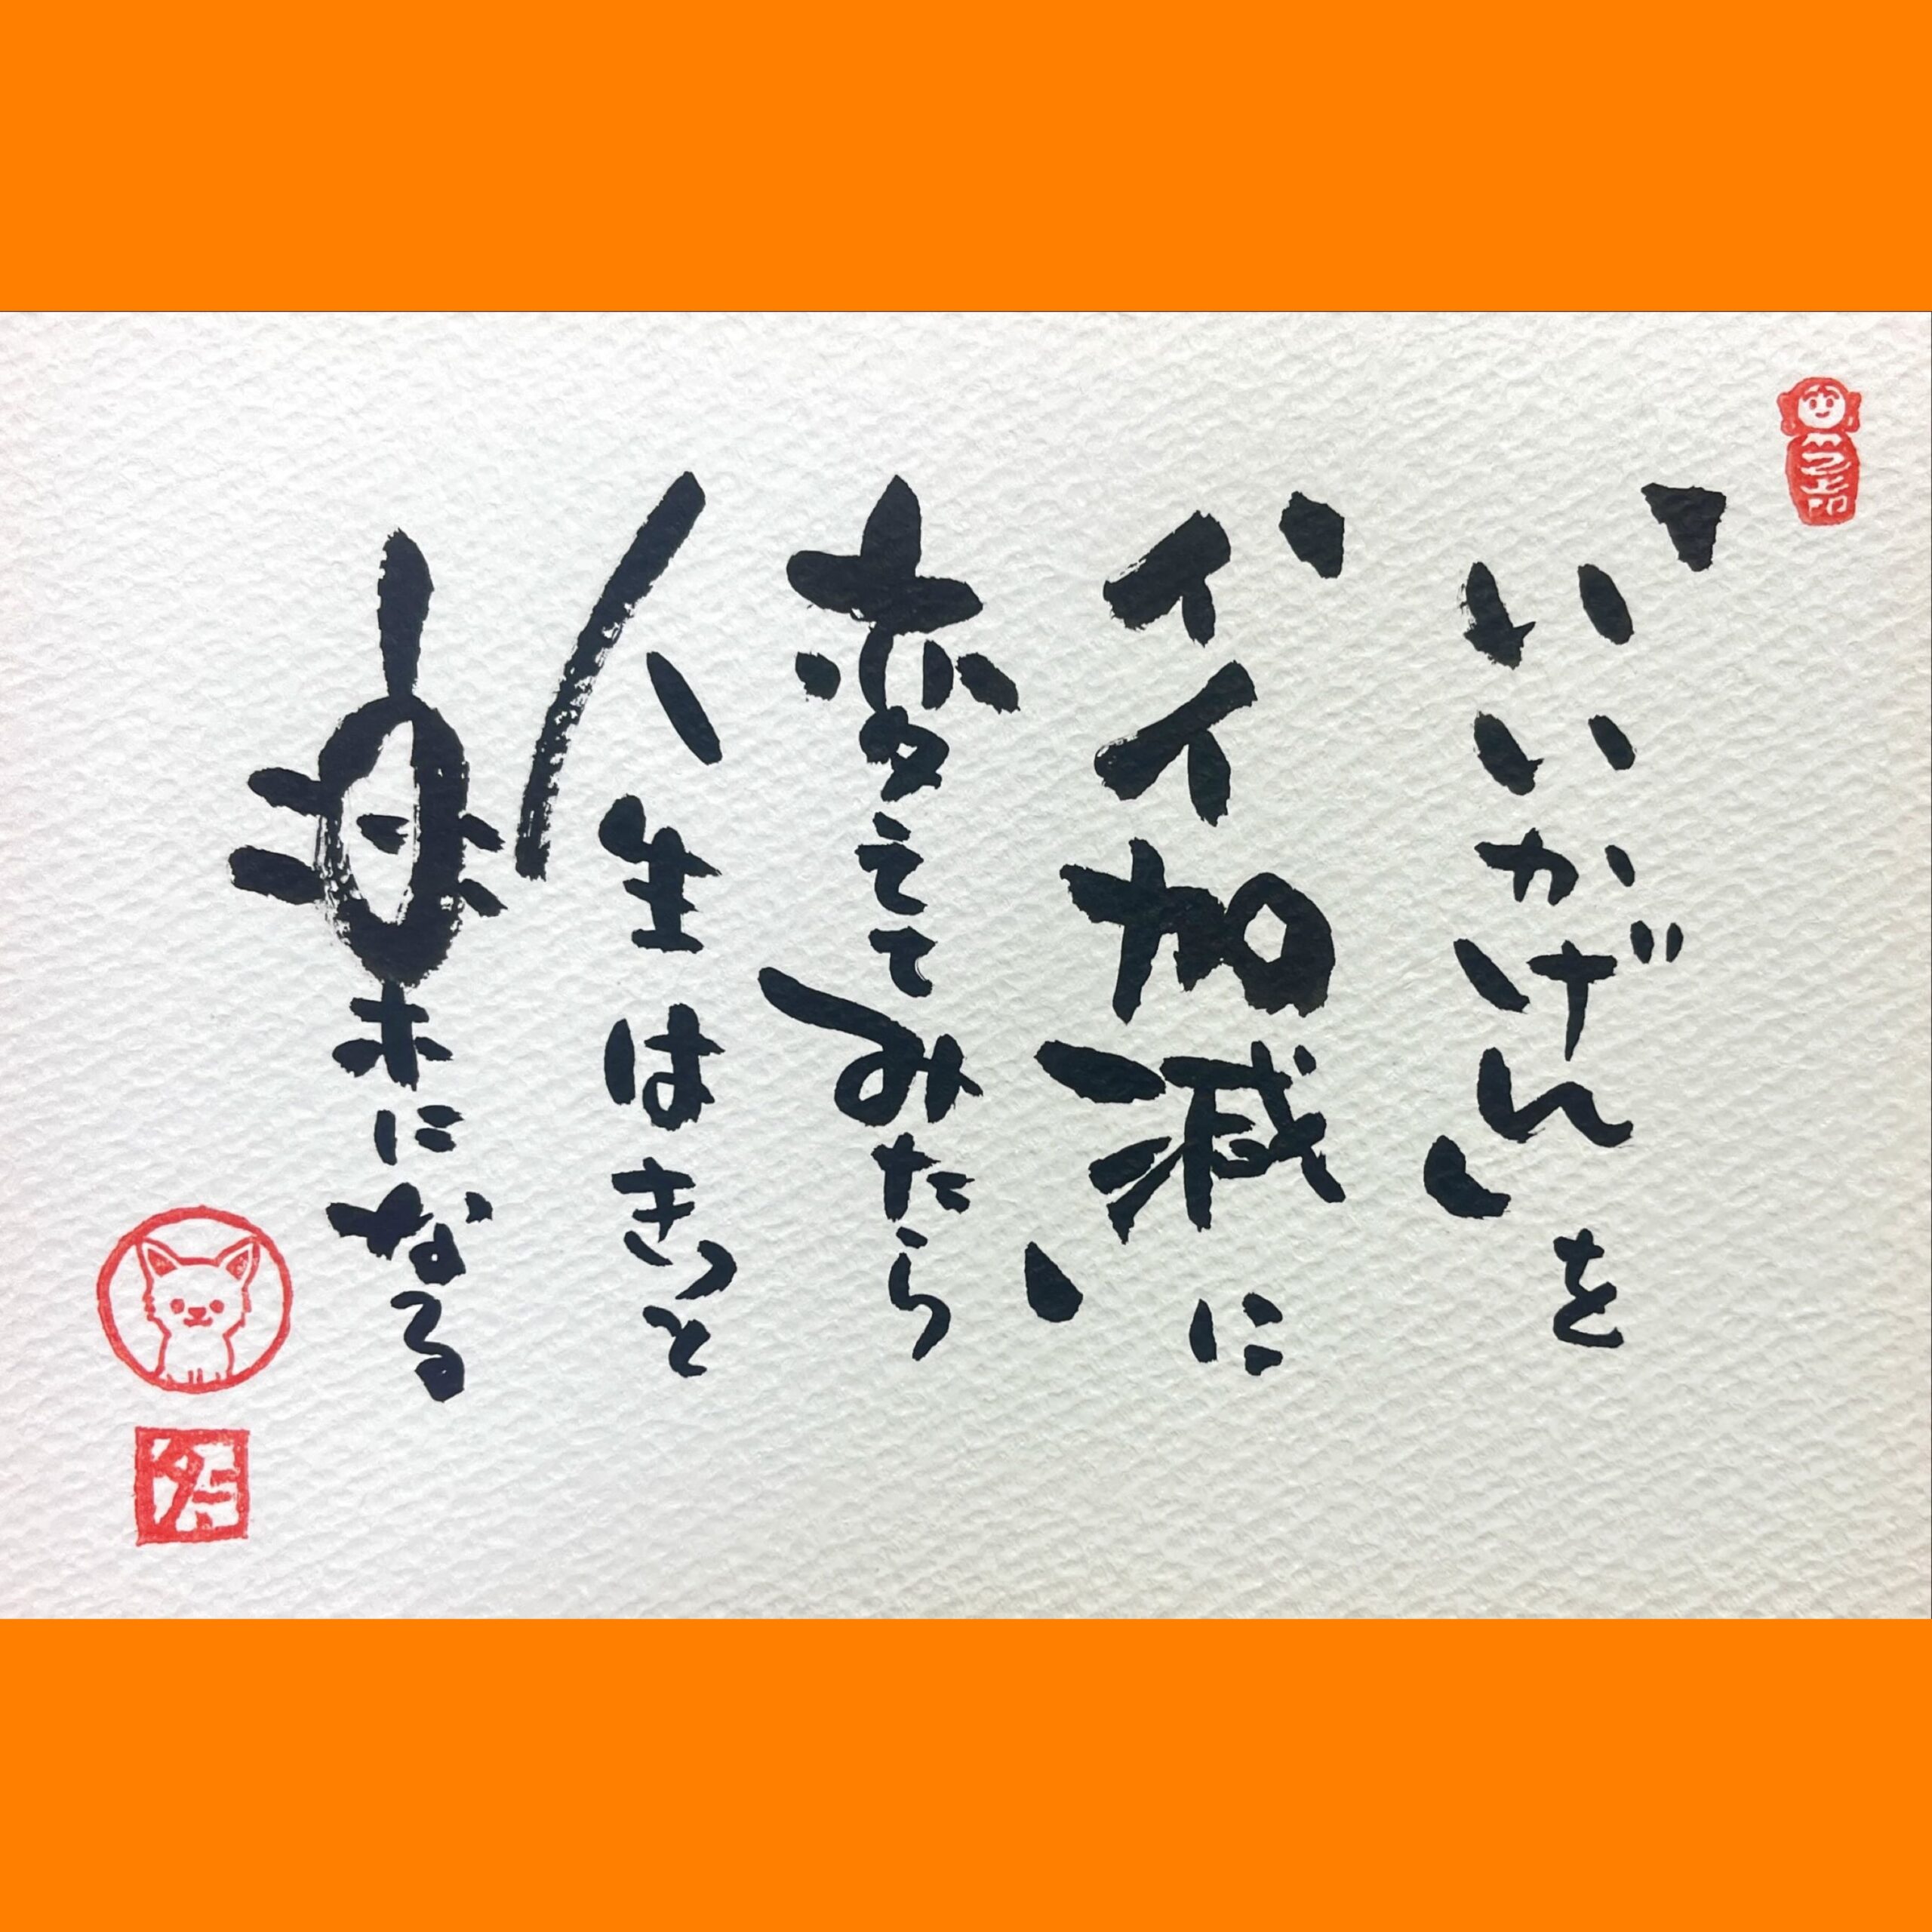 「いいかげん」を
「イイ加減」に
変えてみたら
人生はきっと
楽になる